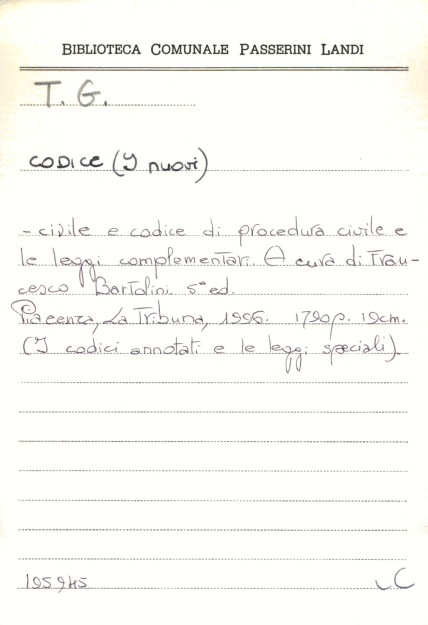 BIBLIOTECA COMUNALE PASSERINI LANDI
T. G.
CODICE (I nuovi)
- civile e codice di procedura civile e
le leggi complementari. A cura di Fran-
cesco Bartolini. 5ª ed.
Piacenza, La Tribuna, 1996. 1790p. 19cm.
(I codici annotati e le leggi speciali).
195945